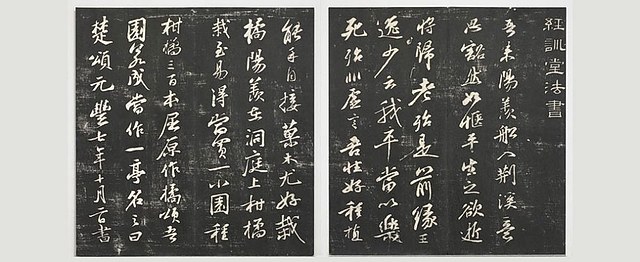 經訓堂法書
吾來陽羨船入荊溪意
思豁然如愜平生之欲逝
將歸老殆是前緣王
逸少云我卒當以樂
死殆非虛言吾性好種植
能手自接菓木尤好栽
橘陽羨在洞庭上柑橘
栽至易得當買一小園種
柑橘三百本屈原作橘頌吾
園若成當作一亭名之曰
楚頌元豐七年十月二日書